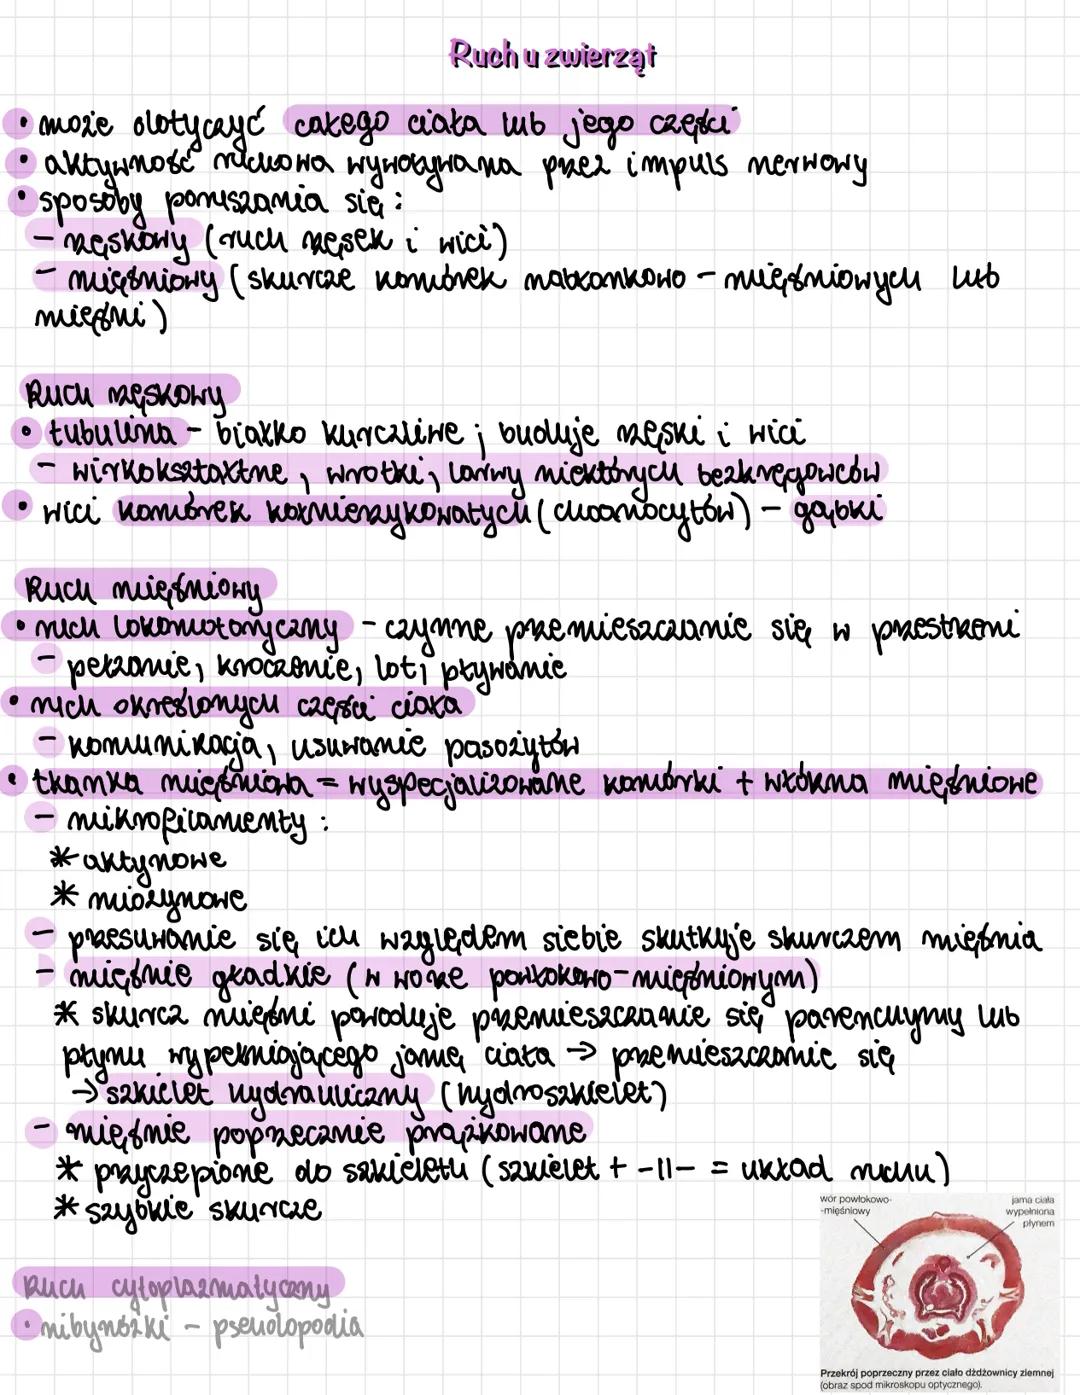 Ruch u zwierząt
• może dotyczyć całego ciała lub jego części
• aktywność ruchowa wywoływana przez impuls nerwowy
• sposoby poruszania się :
- rzęskowy (ruch rzęsek i wici)
- mięśniowy (skurcze komórek nabłonkowo - mięśniowych lub
mięśni)
Ruch rzęskowy
• tubulina - białko kurczliwe ; buduje rzęski i wici
- wirkokształtne, wrotki, larwy niektórych bezkręgowców
• wici komórek kołnierzykowatych (choanocytów) - gąbki
Ruch mięśniowy
• ruch lokomotoryczny - czynne przemieszczanie się w przestrzeni
- pełzanie, kroczenie, lot, pływanie
• ruch określonych części ciała
- komunikacja, usuwanie pasożytów
• tkanka mięśniowa = wyspecjalizowane komórki + włókna mięśniowe
- mikrofilamenty :
* aktynowe
* miozynowe
- przesuwanie się ich względem siebie skutkuje skurczem mięśnia
- mięśnie gładkie (w worze powłokowo-mięśniowym)
* skurcz mięśni powoduje przemieszczanie się parenchymy lub
płynu wypełniającego jamę ciała → przemieszczanie się
→ szkielet hydrauliczny (hydroszkielet)
- mięśnie poprzecznie prążkowane
* przyczepione do szkieletu (szkielet + -||- = układ ruchu)
* szybkie skurcze
wór powłokowo-
-mięśniowy
jama ciała
wypełniona
płynem
Ruch cytoplazmatyczny
• nibynóżki - pseudopodia
Przekrój poprzeczny przez ciało dżdżownicy ziemnej
(obraz spod mikroskopu optycznego).